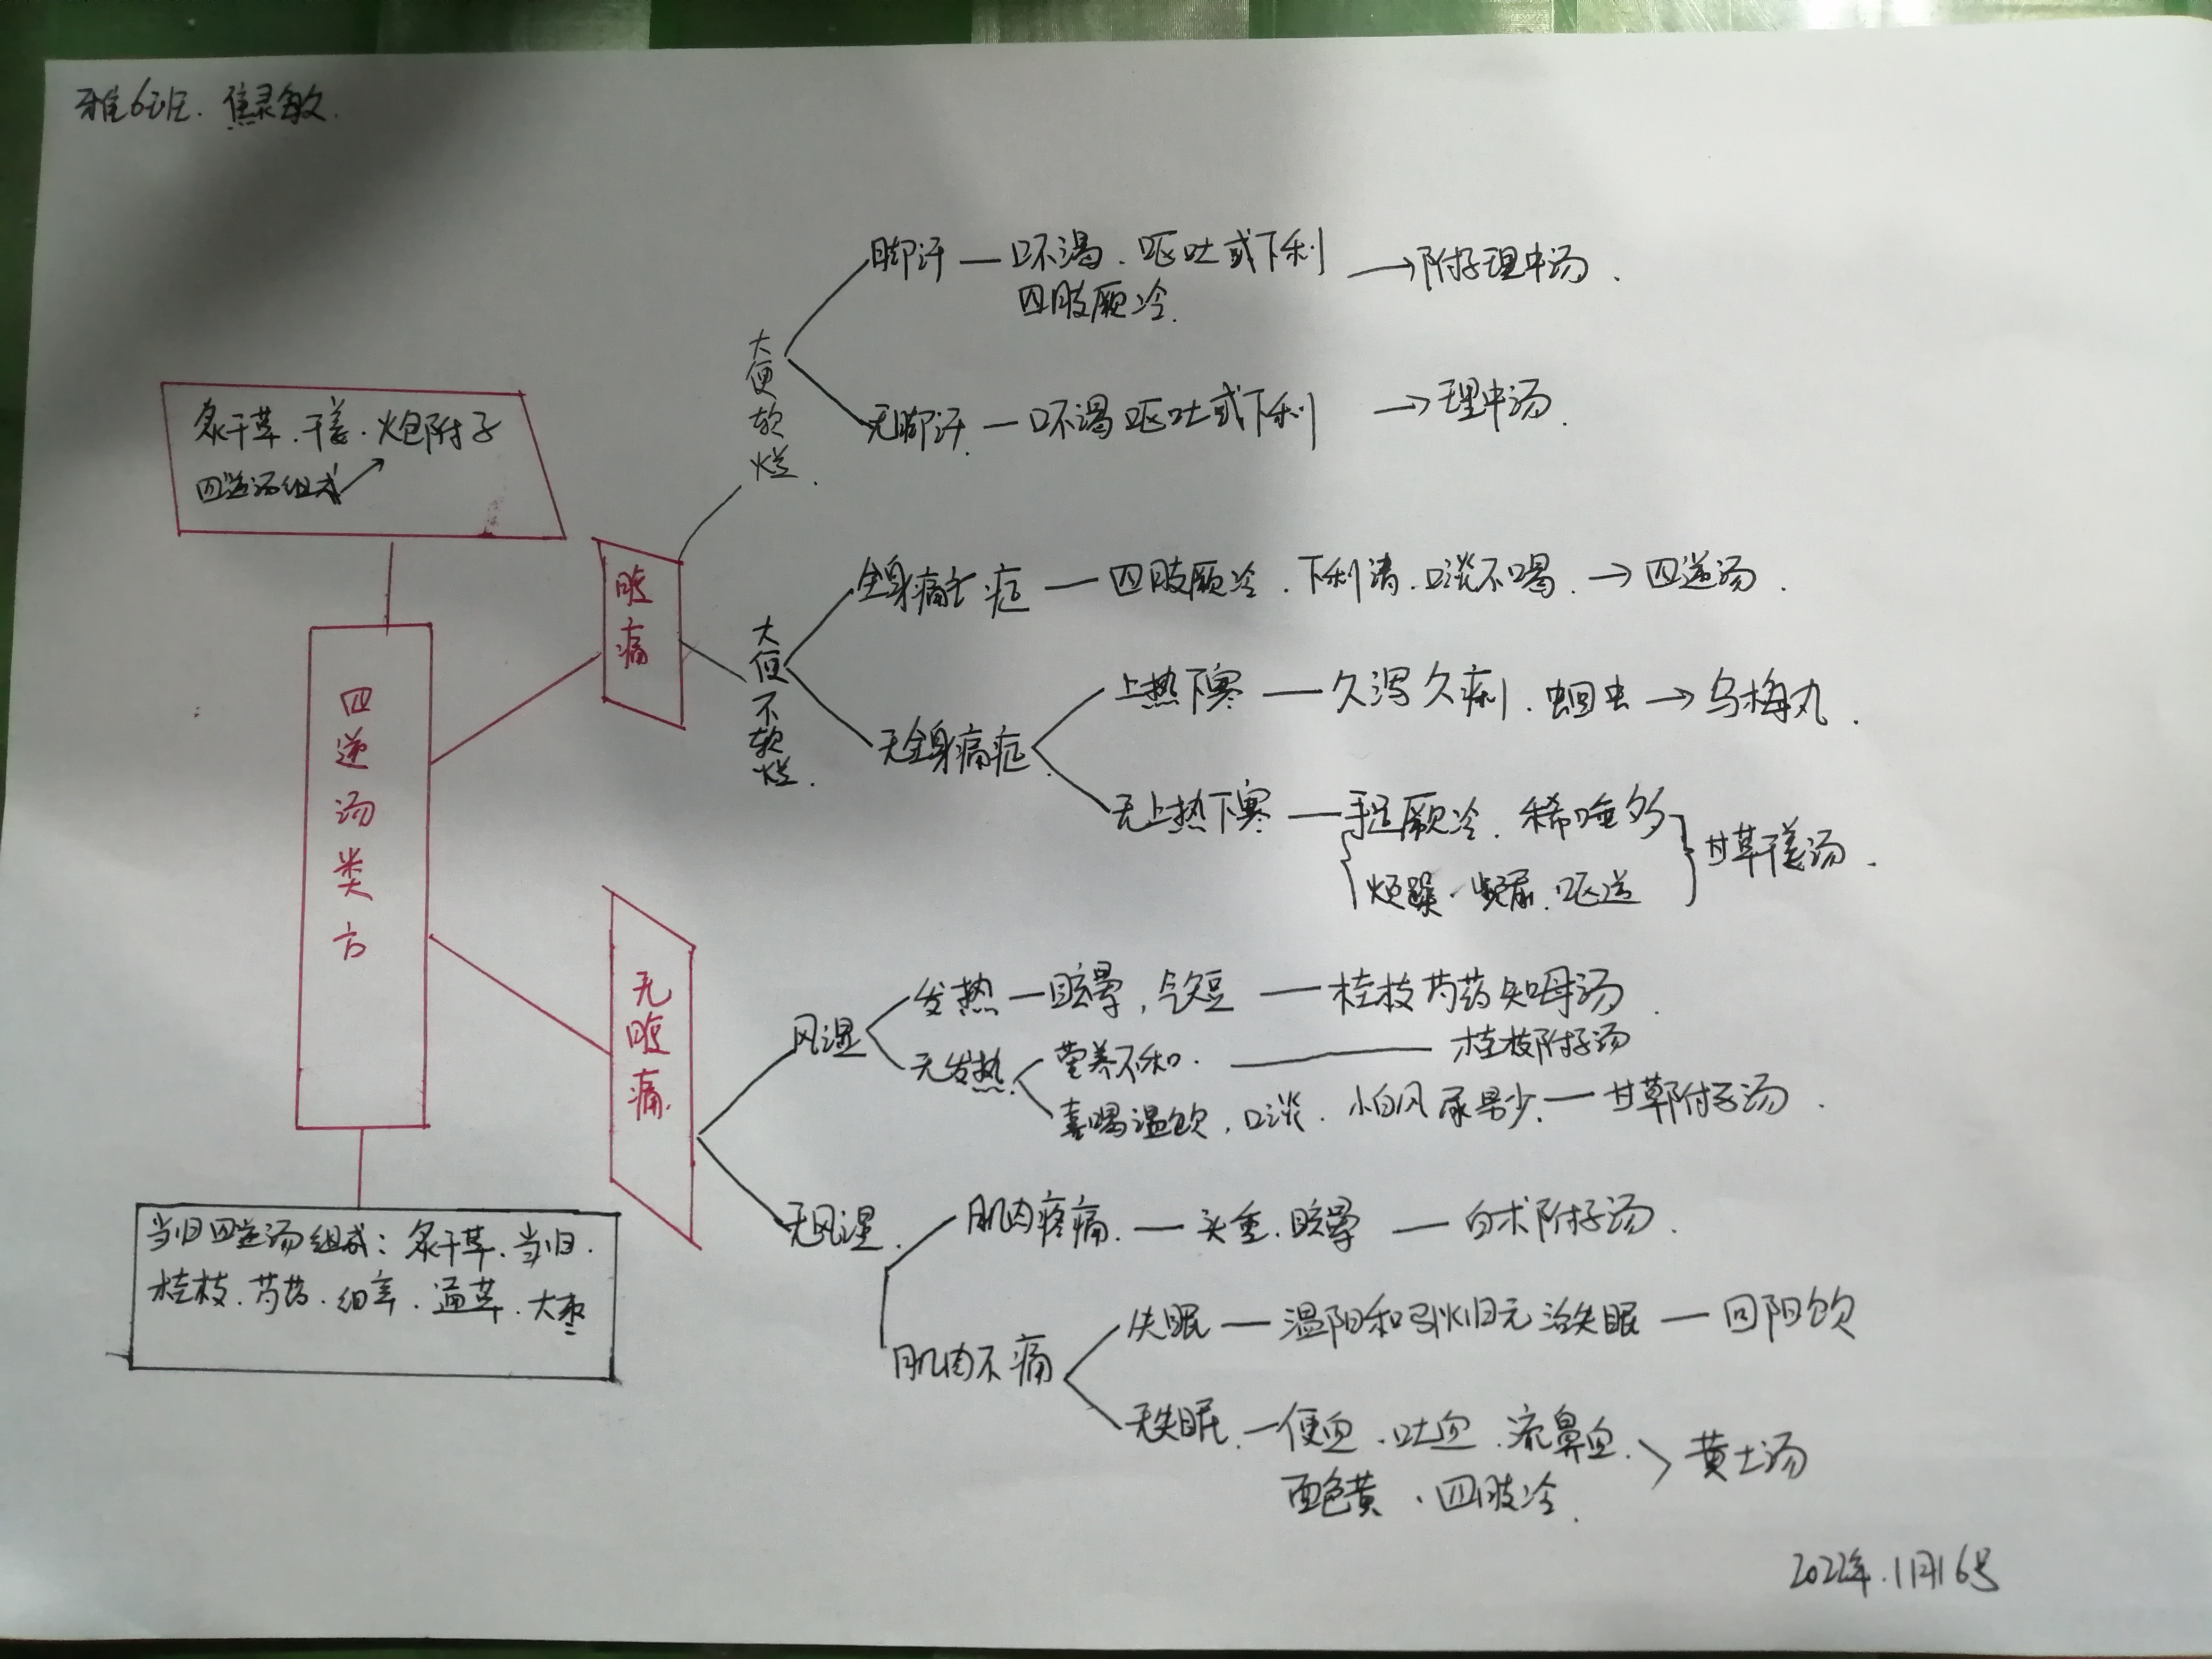 雅6班.焦灵敏.
炙干草.干姜.炮附子
四逆汤组成
四逆汤类方
当归四逆汤组成:炙干草.当归.
桂枝.芍药.细辛.通草.大枣
腹痛
大便软烂.
脚汗—口不渴.呕吐或下利→附子理中汤.
四肢厥冷.
无脚汗.—口不渴呕吐或下利→理中汤.
大便不软烂.
全身痛症—四肢厥冷.下利清.口淡不喝.→四逆汤.
无全身痛症.
上热下寒—久泻久痢.蛔虫→乌梅丸.
无上热下寒—手足厥冷.稀唾多
烦躁.频尿.呕逆
甘草干姜汤.
无腹痛.
风湿
发热—眩晕,气短—桂枝芍药知母汤.
无发热
营养不和.—桂枝附子汤
喜喝温饮,口淡.小白风尿量少.—甘草附子汤.
无风湿.
肌肉疼痛.—头重.眩晕—白术附子汤.
肌肉不痛
失眠—温阳和引火归元治失眠—回阳饮
无失眠.—便血.吐血.流鼻血.
面色黄.四肢冷.
黄土汤
2022年.11月16号